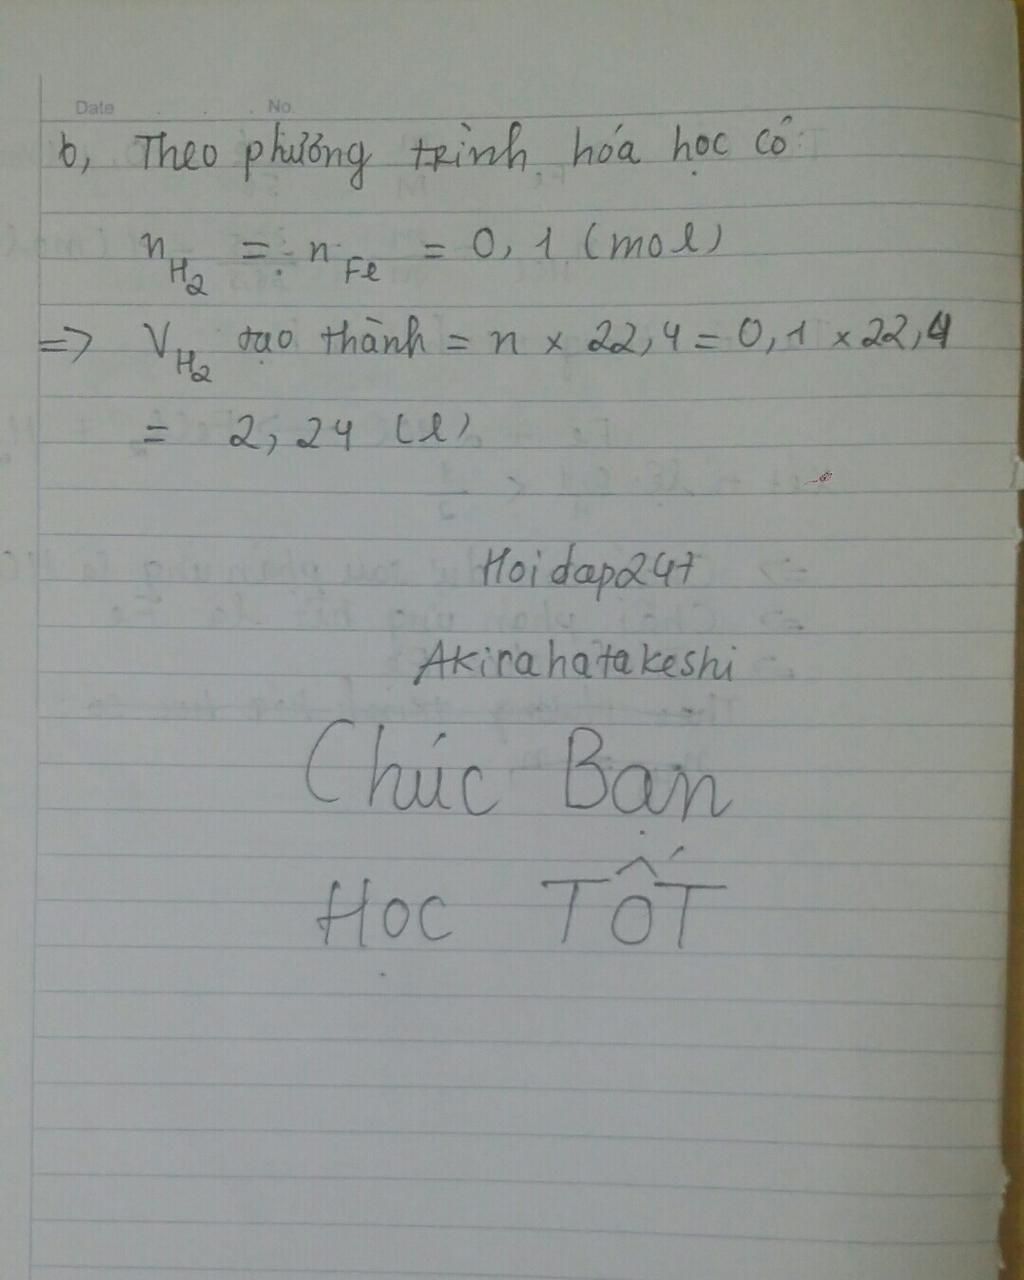 Date No.
b, Theo phương trình hóa học có:
n H2 = n Fe = 0,1 (mol)
=> V H2 tạo thành = n x 22,4 = 0,1 x 22,4
= 2,24 (l)
Hoidap247
Akirahatakeshi
Chúc Bạn
Học TỐT